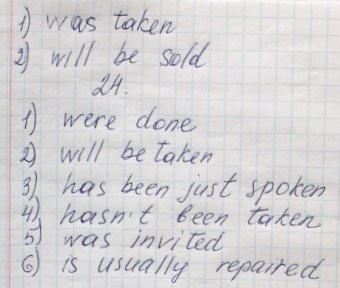 1) was taken
2) will be sold
24.
1) were done
2) will be taken
3) has been just spoken
4) hasn't been taken
5) was invited
6) is usually repaired